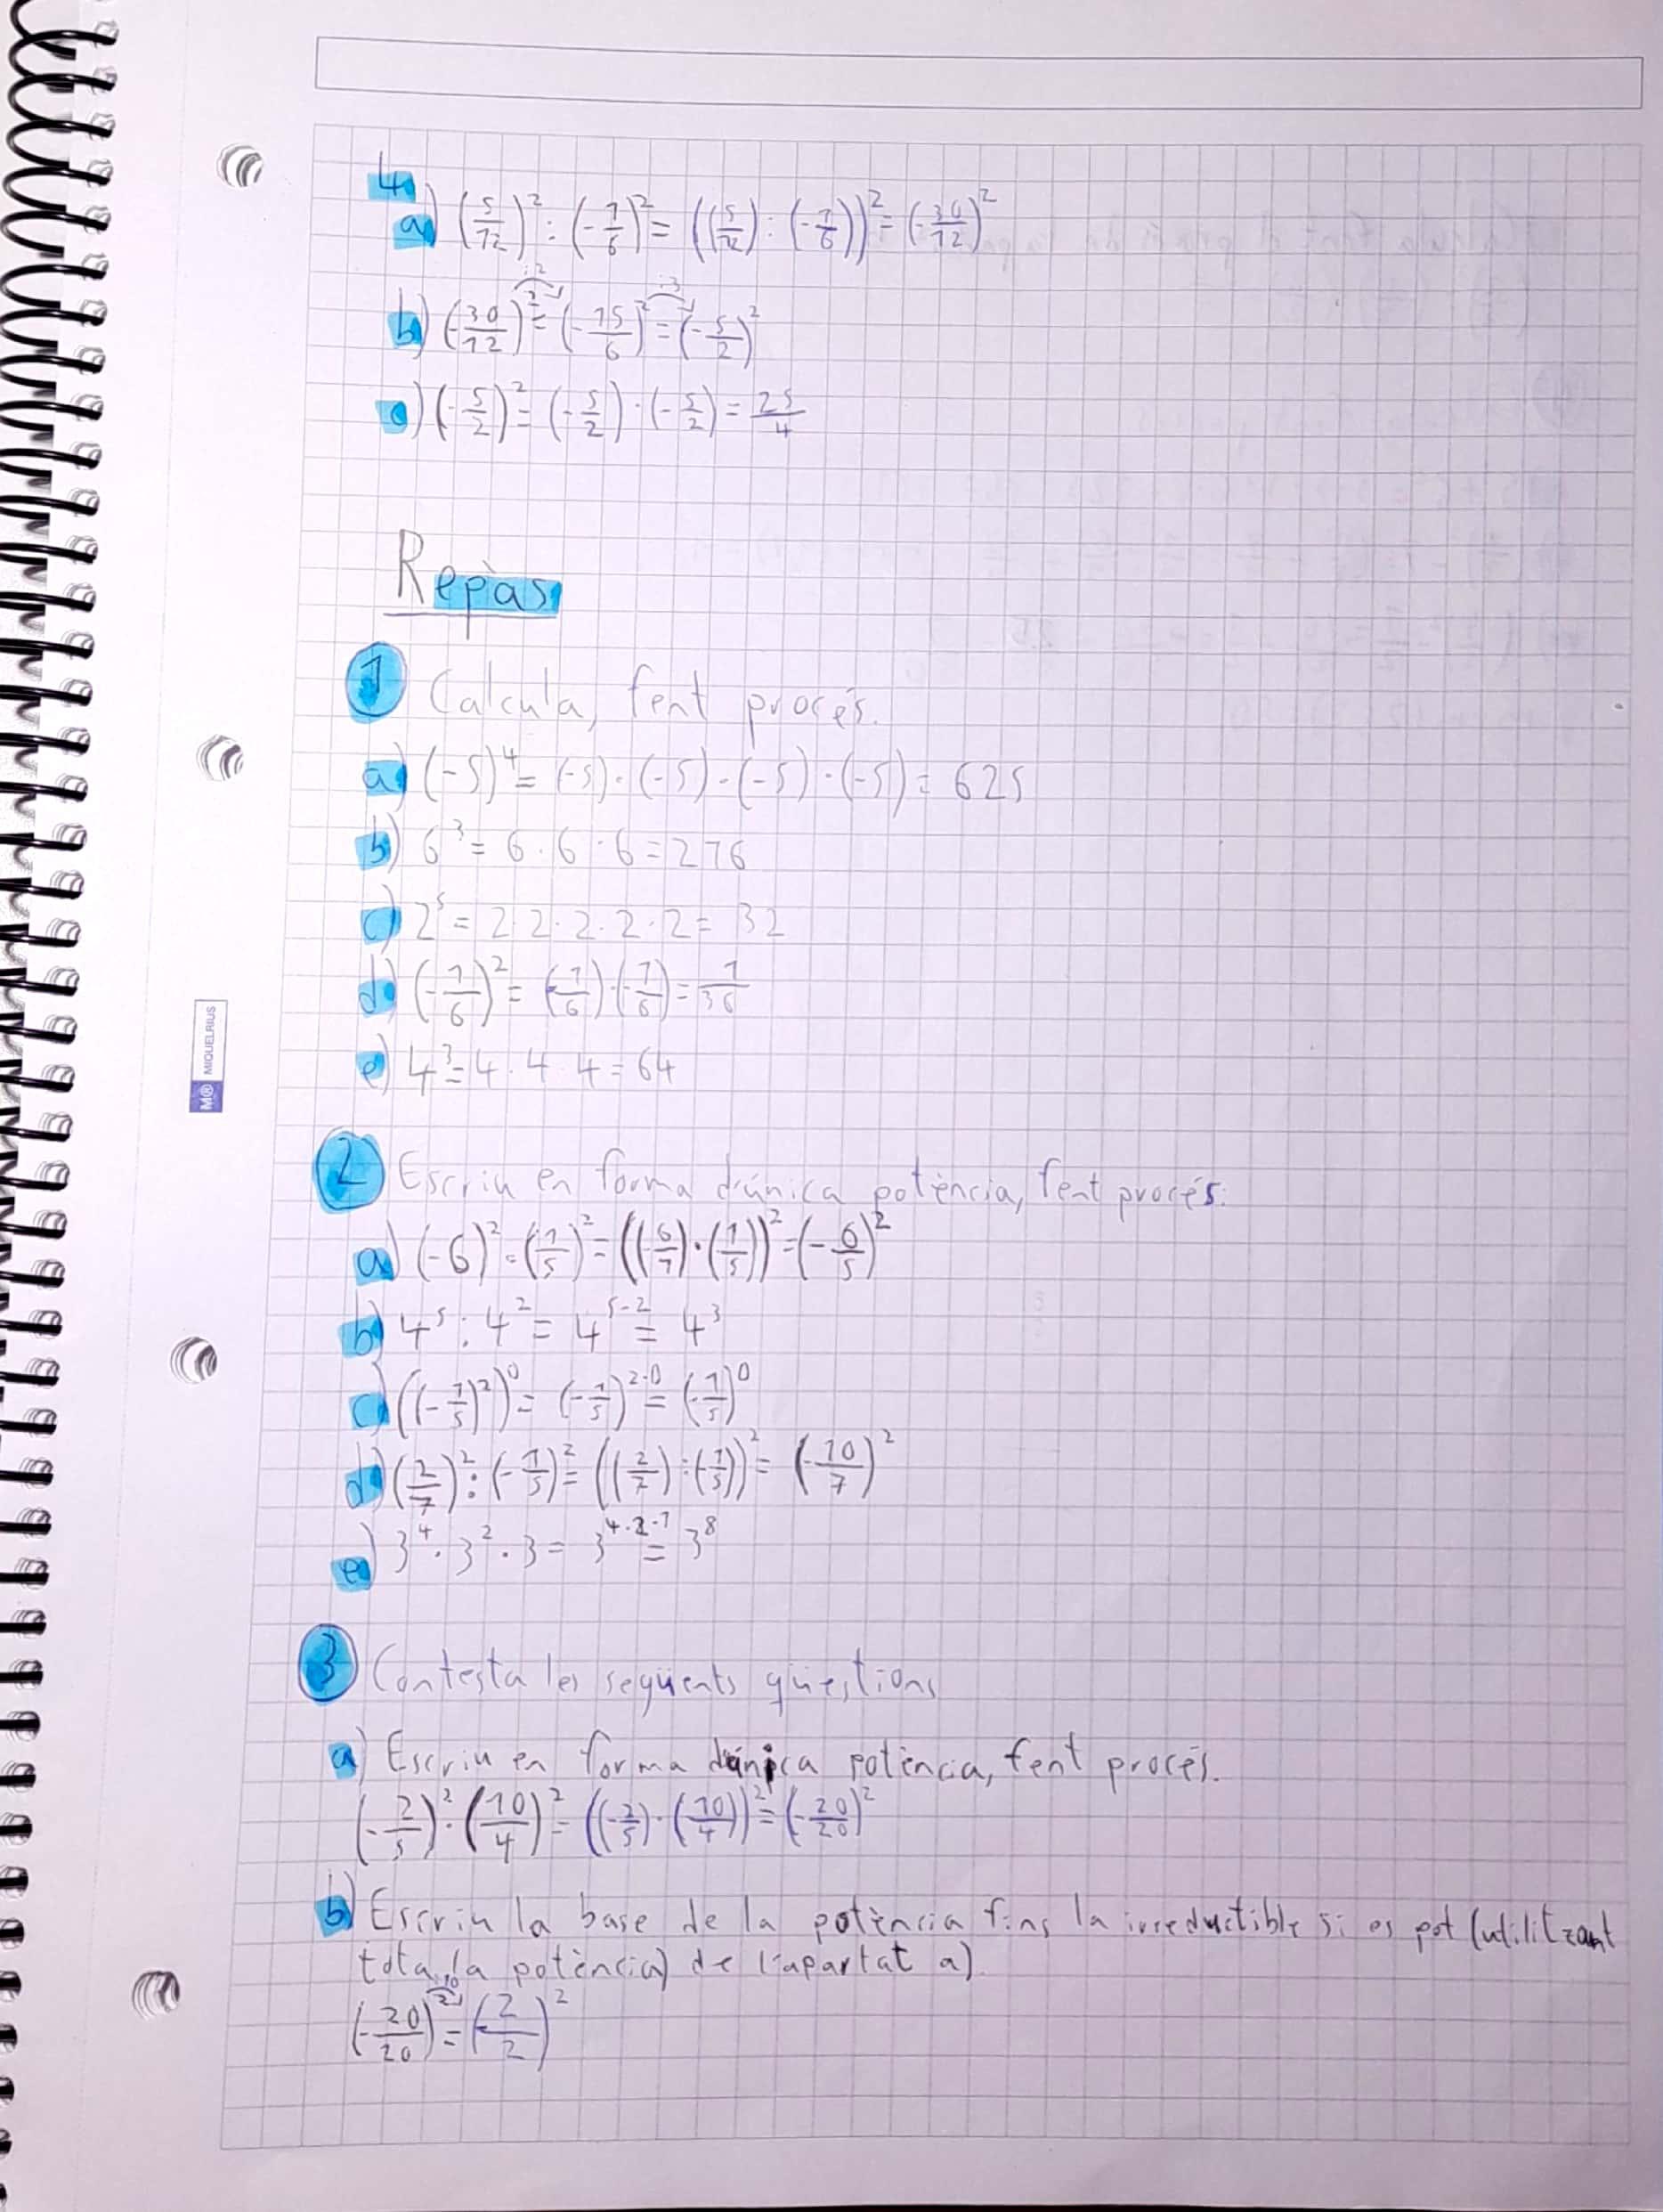 4
a) (5/12)² : (-1/6)² = ((5/12) : (-1/6))² = (-30/12)²
:2 :3
b) (-30/12)² = (-15/6)² = (-5/2)²
c) (-5/2)² = (-5/2) · (-5/2) = 25/4
Repàs
1 Calcula, fent procés.
a) (-5)⁴ = (-5) · (-5) · (-5) · (-5) = 625
b) 6³ = 6 · 6 · 6 = 216
c) 2⁵ = 2 · 2 · 2 · 2 · 2 = 32
d) (-1/6)² = (-1/6) · (-1/6) = 1/36
e) 4³ = 4 · 4 · 4 = 64
MIQUELRIUS
2 Escriu en forma d'única potència, fent procés.
a) (-6)² · (1/5)² = ((-6/1) · (1/5))² = (-6/5)²
b) 4⁵ : 4² = 4⁵⁻² = 4³
c) ((-1/5)²)⁰ = (-1/5)²·⁰ = (-1/5)⁰
d) (2/7)² : (-1/5)² = ((2/7) : (-1/5))² = (-10/7)²
e) 3⁴ · 3² · 3 = 3⁴·²·¹ = 3⁸
3 Contesta les següents qüestions
a) Escriu en forma d'única potència, fent procés.
(-2/5)² · (10/4)² = ((-2/5) · (10/4))² = (-20/20)²
b) Escriu la base de la potència fins la irreductible si es pot (utilitzant
tota la potència) de l'apartat a).
:10
(-20/20)² = (-2/2)²